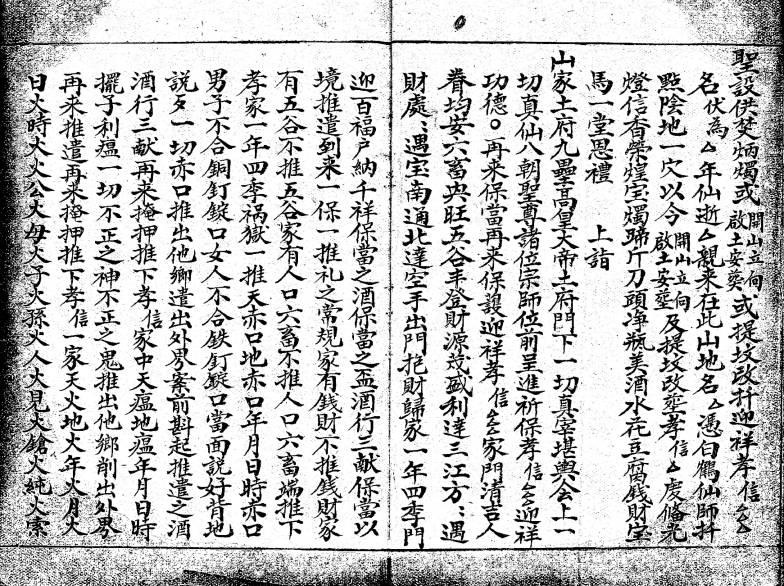 聖設供焚炳燭或開山立向啟土安葵或提坟改扦迎祥孝信厶厶
名伏為厶年仙逝厶覲来在此山地名厶憑白鶴仙師扦
㸃陰地一穴以今開山立向啟土安塟及提坟改塟孝信厶慶脩光
燈信香荣煌宝燭蹄斤刀頭净瓶美酒水花豆腐錢財宝
馬一堂恩禮 上詣
山家土府九壘高皇大帝土府門下一切真宰堪輿会上一
切真仙八朝聖尊諸位宗師位前呈進祈保孝信厶厶迎祥
功德○再来保當再来保護迎祥孝信厶厶家門清吉人
眷均安六畜興旺五谷丰登財源茂盛利達三江方〻遇
財處〻遇宝南通北達空手出門抱財歸家一年四季門
迎百福户納千祥保當之酒保當之盃酒行三献保當以
境推遣到来一保一推礼之常規家有錢財不推錢財家
有五谷不推五谷家有人口六畜不推人口六畜端推下
孝家一年四季禍獄一推天赤口地赤口年月日時赤口
男子不合銅釘錠口女人不合鉄釘錠口當面說好背地
說歹一切赤口推出他鄉遣出外界案前斟起推遣之酒
酒行三献再来掩押推下孝信家中天瘟地瘟年月日時
擺子利瘟一切不正之神不正之鬼推出他鄉削出外界
再来推遣再来掩押推下孝信一家天火地火年火月火
日火時火火公火母火子火孫火人火見火鎗火純火索